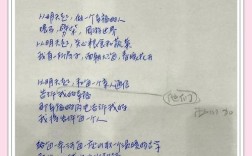 从明天起，做一个幸福的人
喂马，劈柴，周游世界
从明天起，关心粮食和蔬菜
我有一所房子，面朝大海，春暖花开
从明天起，和每一个亲人通信
告诉他们我的幸福
那幸福的闪电告诉我的
我将告诉每一个人
给每一条河每一座山取一个温暖的名字